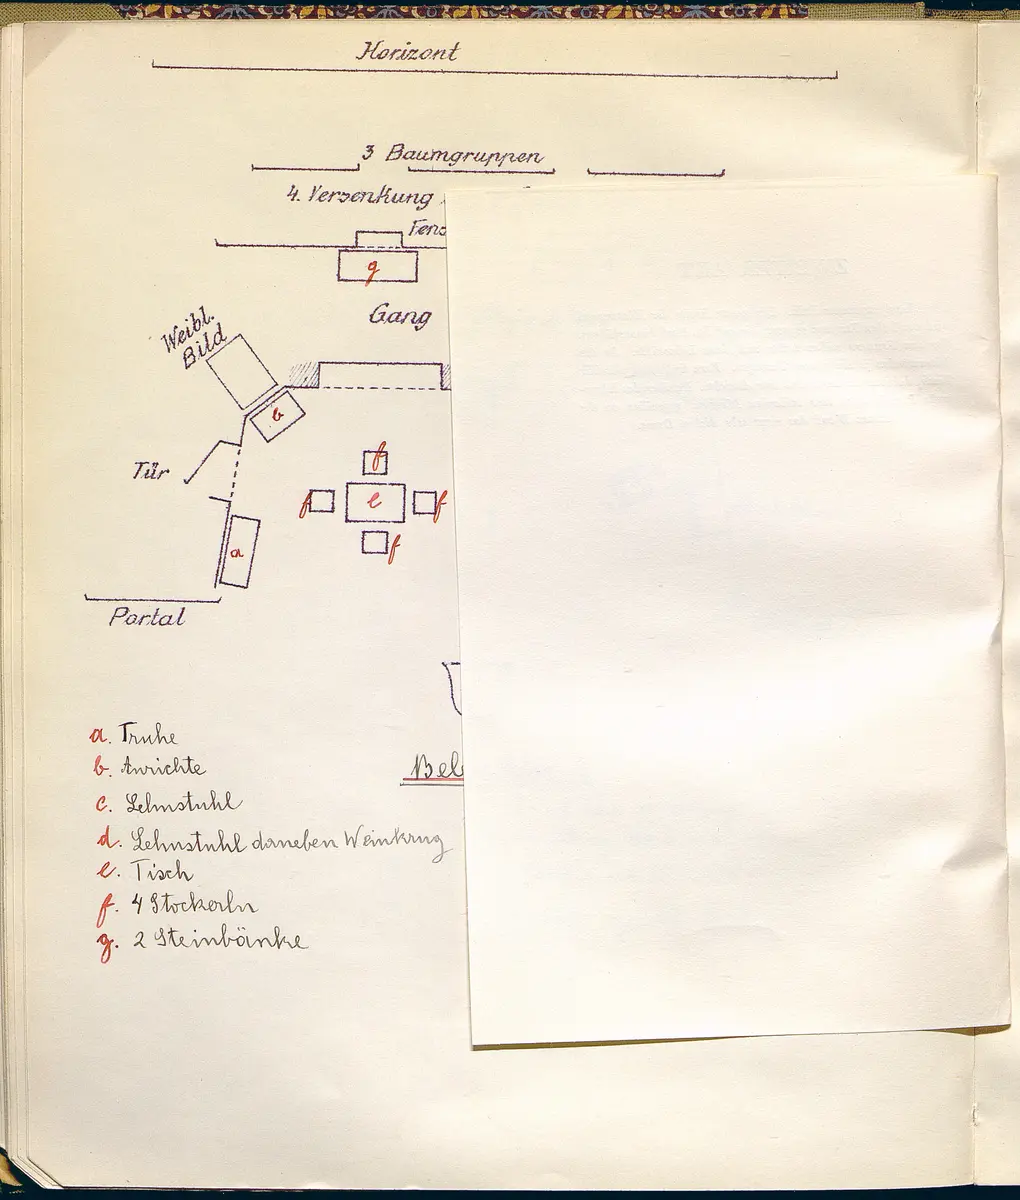 Horizont
3 Baumgruppen
4. Versenkung
Fens
g
Gang
Weibl.
Bild
b
Tür
f
f e f
f
a
Portal
a. Truhe
b. Anrichte
c. Lehnstuhl
d. Lehnstuhl daneben Weinkrug
e. Tisch
f. 4 Stockerln
g. 2 Steinbänke
Bel